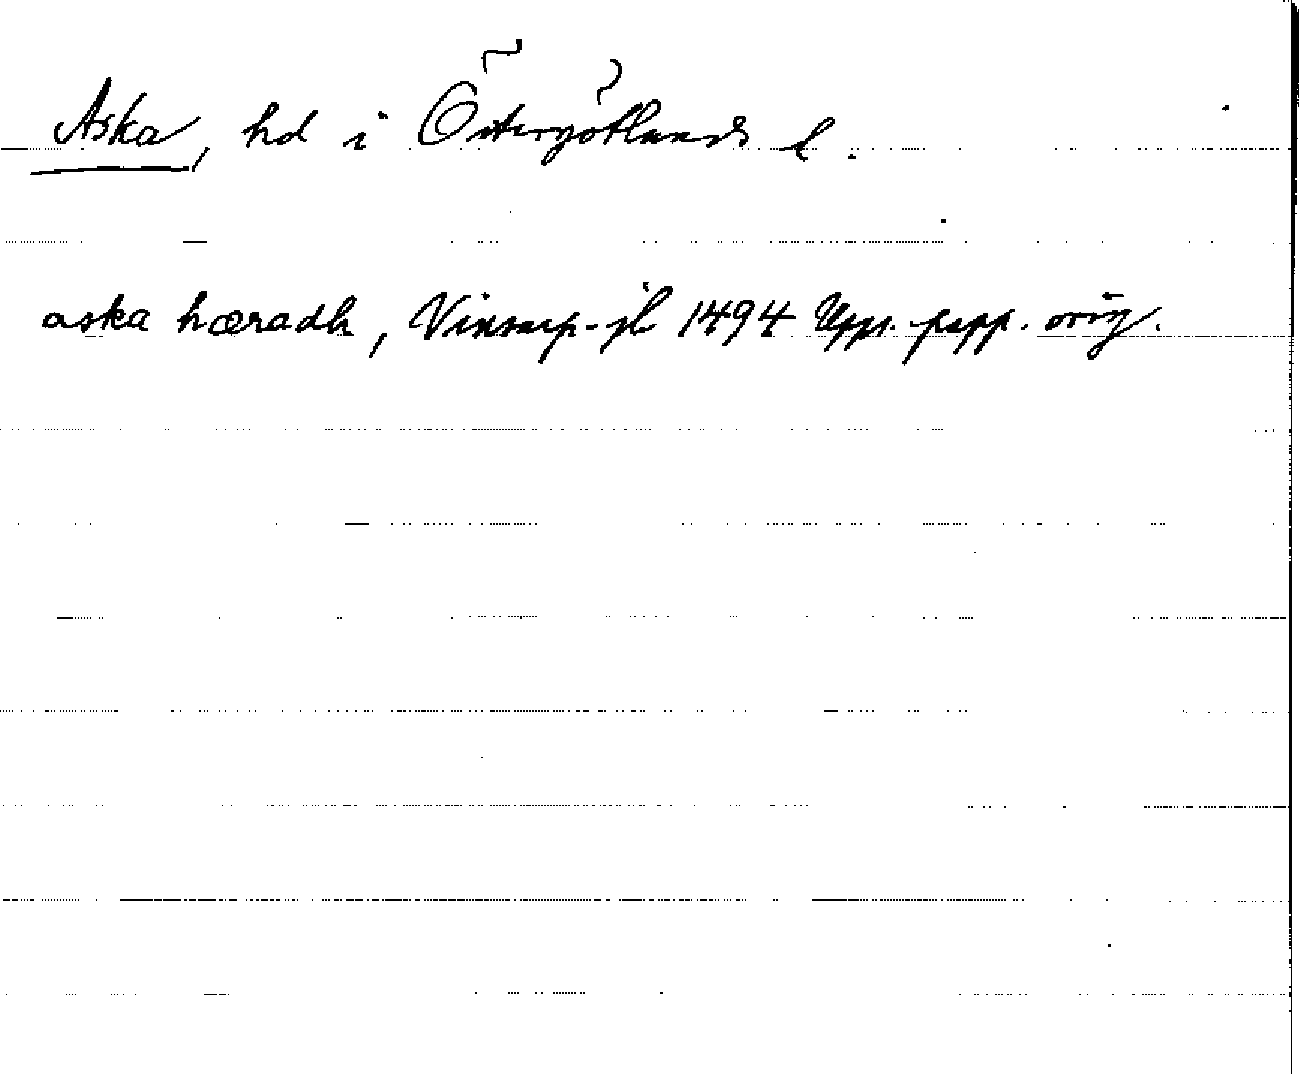 Aska, hd i Östergötlands l.
aska hæradh, Vinsarp-jb 1494 Upps. papp. orig.